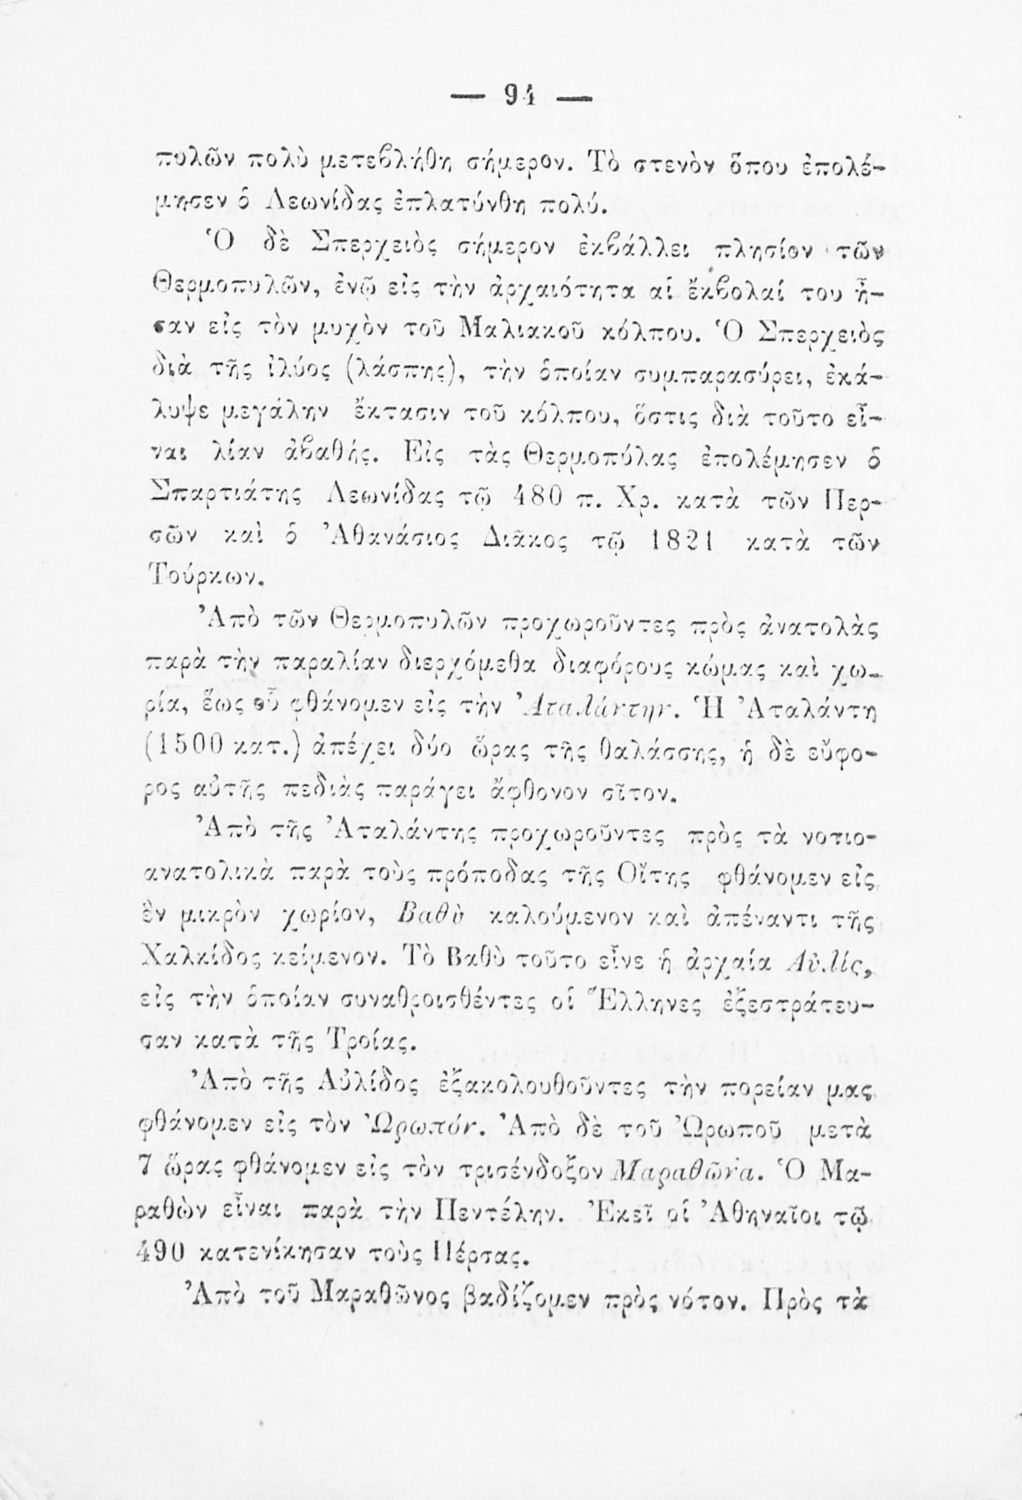 — 94 —
πυλῶν πολὺ μετεβλήθη σήμερον. Τὸ στενὸν ὅπου ἐπολέ-
μησεν ὁ Λεωνίδας ἐπλατύνθη πολύ.
Ὁ δὲ Σπερχειὸς σήμερον ἐκβάλλει πλησίον τῶν
Θερμοπυλῶν, ἐνῷ εἰς τὴν ἀρχαιότητα αἱ ἐκβολαί του ἦ-
σαν εἰς τὸν μυχὸν τοῦ Μαλιακοῦ κόλπου. Ὁ Σπερχειὸς
διὰ τῆς ἰλύος (λάσπης), τὴν ὁποίαν συμπαρασύρει, ἐκά-
λυψε μεγάλην ἔκτασιν τοῦ κόλπου, ὅστις διὰ τοῦτο εἶ-
ναι λίαν ἀβαθής. Εἰς τὰς Θερμοπύλας ἐπολέμησεν ὁ
Σπαρτιάτης Λεωνίδας τῷ 480 π. Χρ. κατὰ τῶν Περ-
σῶν καὶ ὁ Ἀθανάσιος Διᾶκος τῷ 1821 κατὰ τῶν
Τούρκων.
Ἀπὸ τῶν Θερμοπυλῶν προχωροῦντες πρὸς ἀνατολὰς
παρὰ τὴν παραλίαν διερχόμεθα διαφόρους κώμας καὶ χω-
ρία, ἕως οὗ φθάνομεν εἰς τὴν Ἀταλάντην. Ἡ Ἀταλάντη
(1500 κατ.) ἀπέχει δύο ὥρας τῆς θαλάσσης, ἡ δὲ εὔφο-
ρος αὐτῆς πεδιὰς παράγει ἄφθονον σῖτον.
Ἀπὸ τῆς Ἀταλάντης προχωροῦντες πρὸς τὰ νοτιο-
ανατολικὰ παρὰ τοὺς πρόποδας τῆς Οἴτης φθάνομεν εἰς
ἓν μικρὸν χωρίον, Βαθὺ καλούμενον καὶ ἀπέναντι τῆς
Χαλκίδος κείμενον. Τὸ Βαθὺ τοῦτο εἶνε ἡ ἀρχαία Αὐλίς,
εἰς τὴν ὁποίαν συναθροισθέντες οἱ Ἕλληνες ἐξεστράτευ-
σαν κατὰ τῆς Τροίας.
Ἀπὸ τῆς Αὐλίδος ἐξακολουθοῦντες τὴν πορείαν μας
φθάνομεν εἰς τὸν Ὠρωπόν. Ἀπὸ δὲ τοῦ Ὠρωποῦ μετὰ
7 ὥρας φθάνομεν εἰς τὸν τρισένδοξον Μαραθῶνα. Ὁ Μα-
ραθὼν εἶναι παρὰ τὴν Πεντέλην. Ἐκεῖ οἱ Ἀθηναῖοι τῷ
490 κατενίκησαν τοὺς Πέρσας.
Ἀπὸ τοῦ Μαραθῶνος βαδίζομεν πρὸς νότον. Πρὸς τὰ